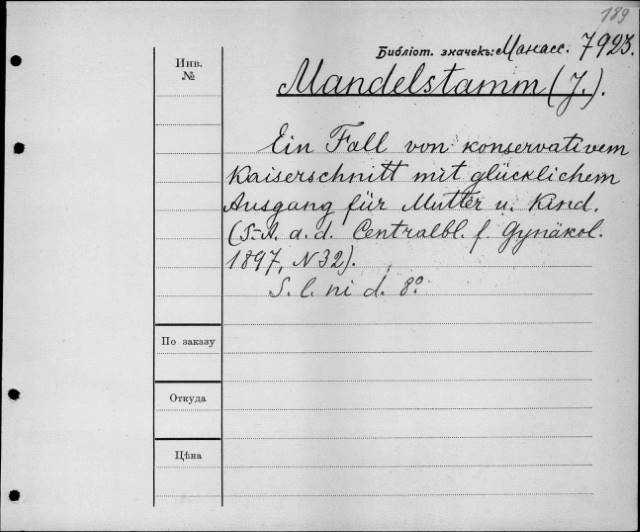 189
Библіот. значекъ: Манасс. 7923.
Инв.
№
Mandelstamm (J.).
Ein Fall von konservativem
Kaiserschnitt mit glücklichem
Ausgang für Mutter u. Kind.
(S.-A. a. d. Centralbl. f. Gynäkol.
1897, N 32).
S. l. ni d. 8º
По заказу
Откуда
Цѣна